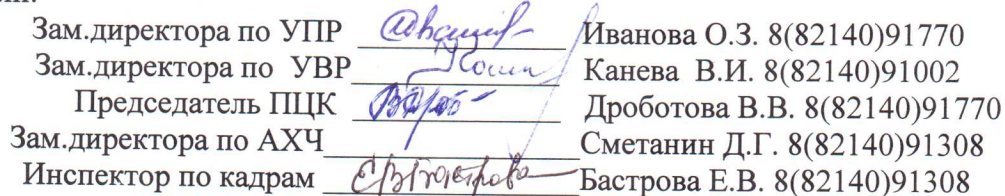 Зам.директора по УПР Иванова О.З. 8(82140)91770
Зам.директора по УВР Канева В.И. 8(82140)91002
Председатель ПЦК Дроботова В.В. 8(82140)91770
Зам.директора по АХЧ Сметанин Д.Г. 8(82140)91308
Инспектор по кадрам Бастрова Е.В. 8(82140)91308